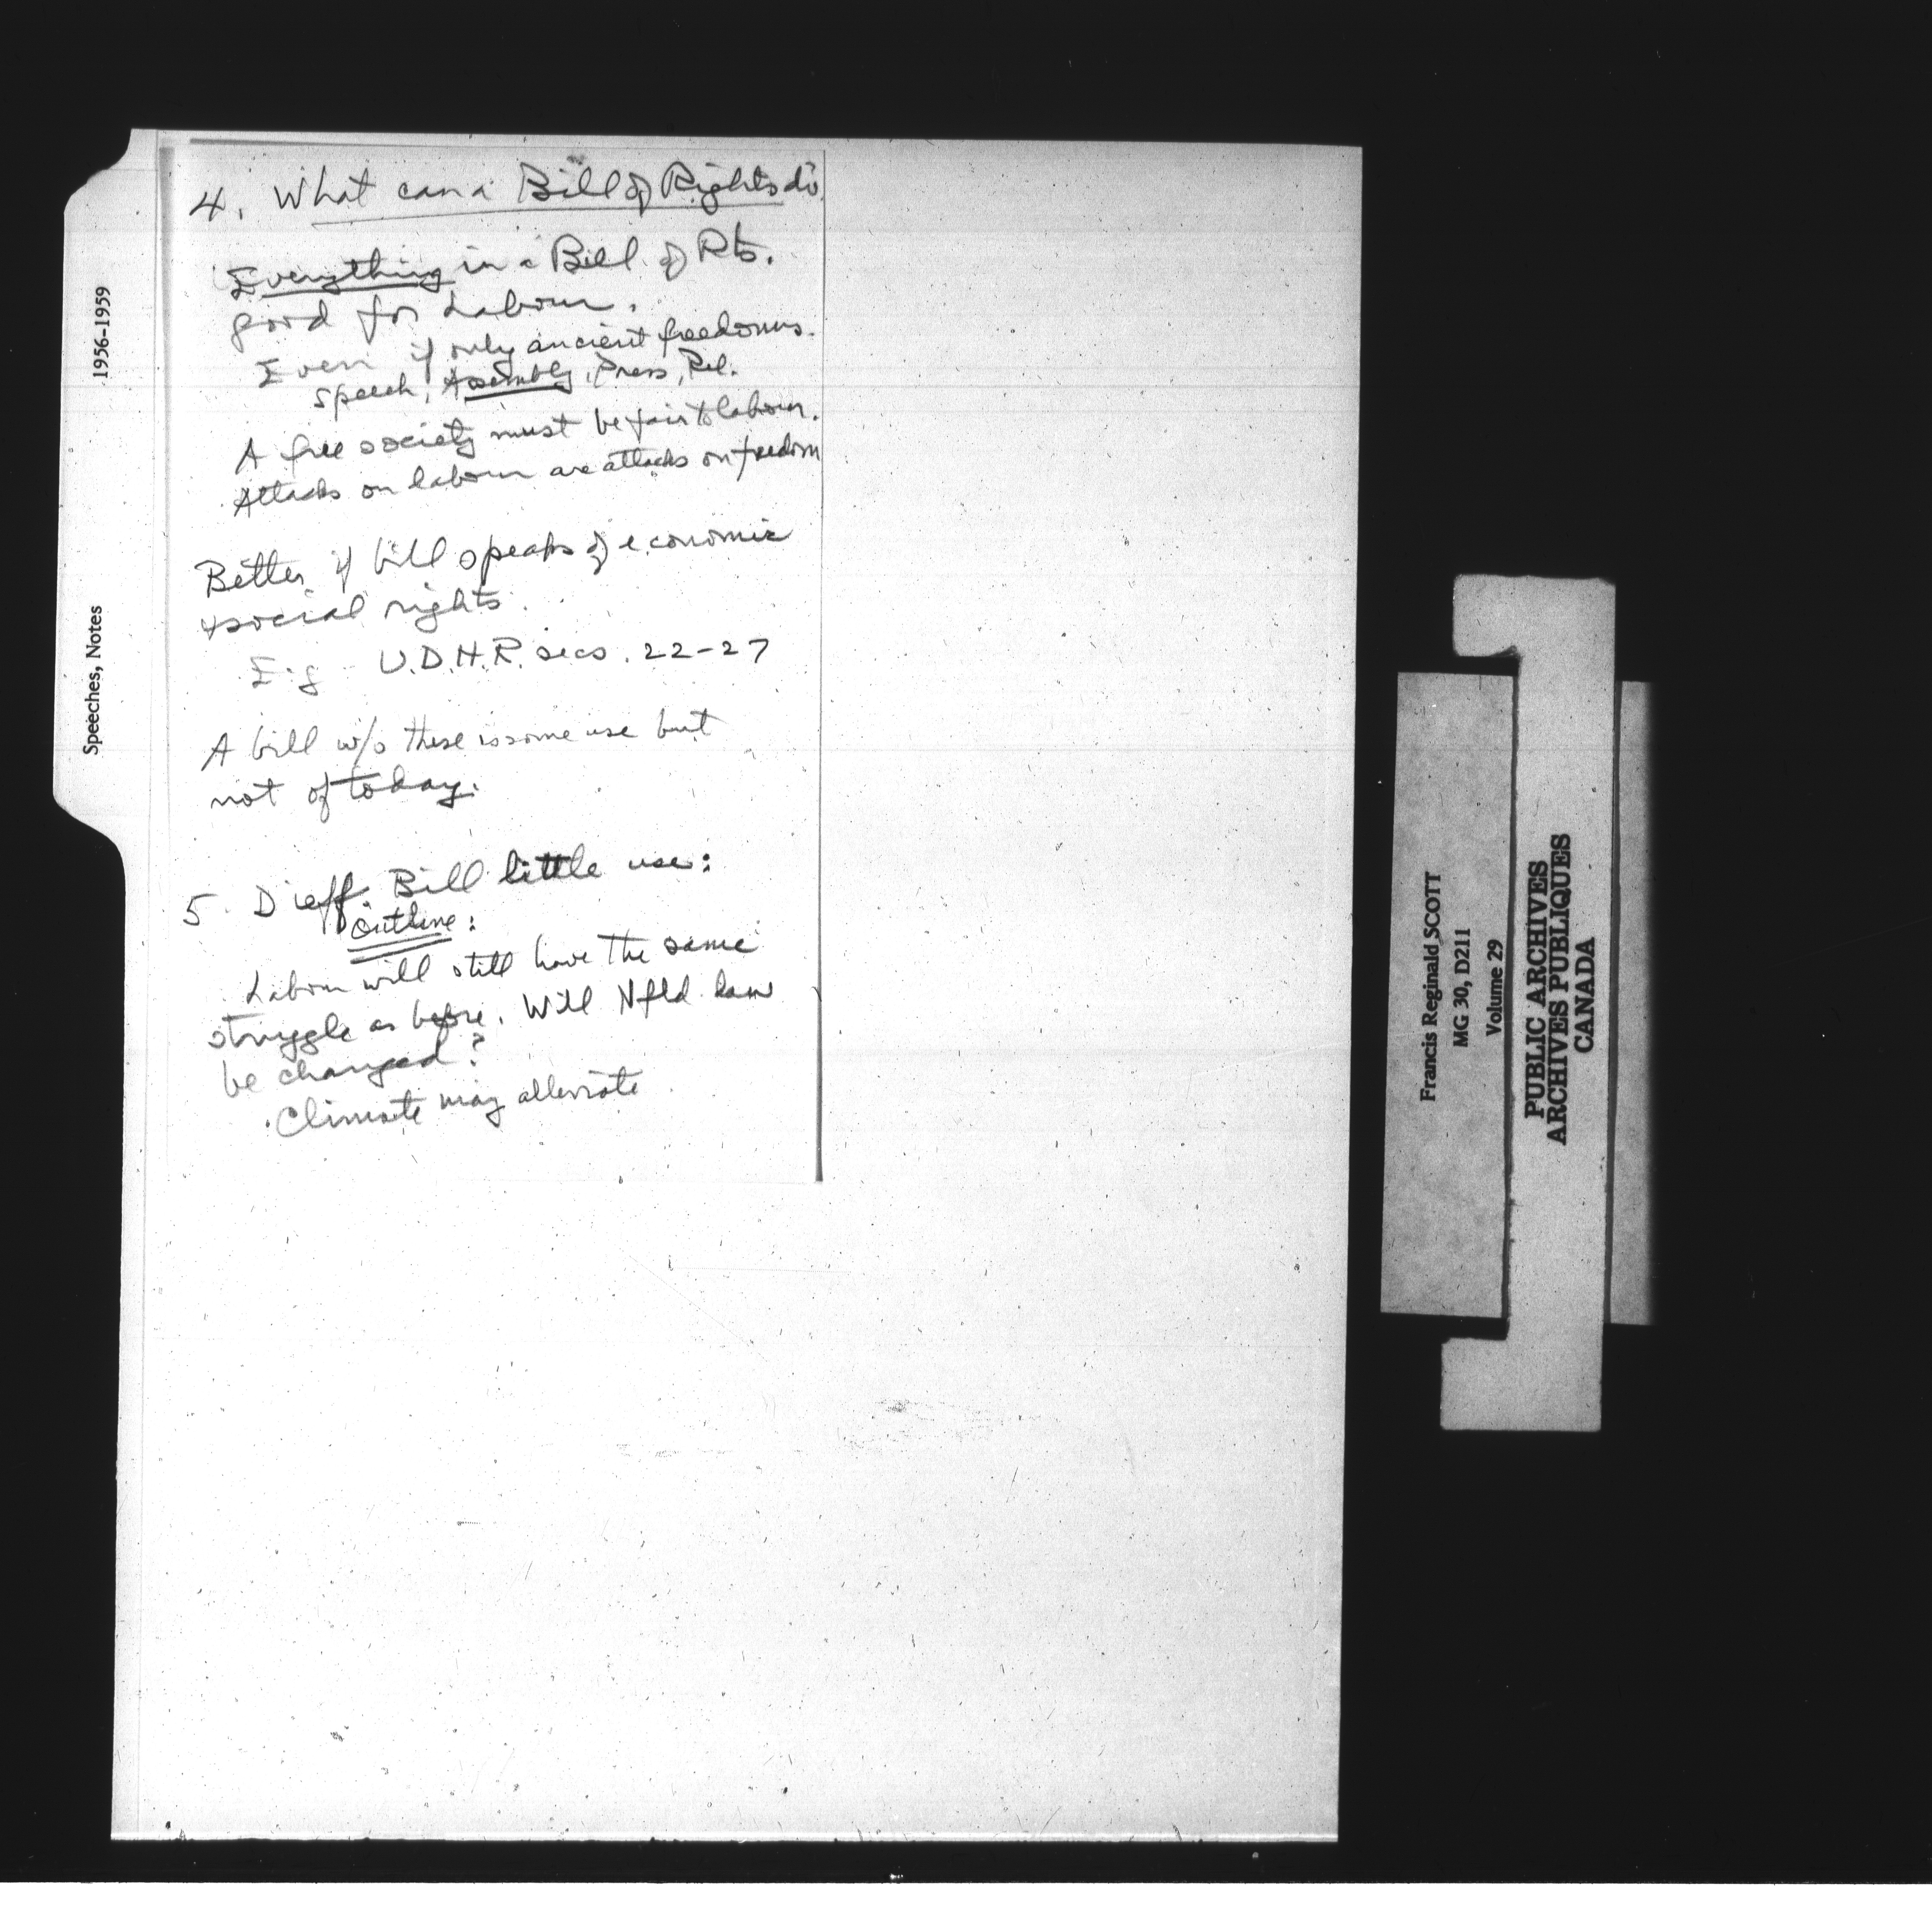 4. What can a Bill of Rights do
Everything in a Bill of Rts.
good for Labour.
Even if only ancient freedoms.
Speech, Assembly, Press, Rel.
A free society must be fair to labour.
Attacks on labour are attacks on freedom
Better if bill speaks of economic
& social rights.
E.g. U.D.H.R. secs. 22-27
A bill w/o these is some use but
not of today.
5. Dieff. Bill little use:
Outline:
Labour will still have the same
struggle as before. Will Nfld. law
be changed?
Climate may alleviate
1956-1959
Speeches, Notes
Francis Reginald SCOTT
MG 30, D211
Volume 29
PUBLIC ARCHIVES
ARCHIVES PUBLIQUES
CANADA